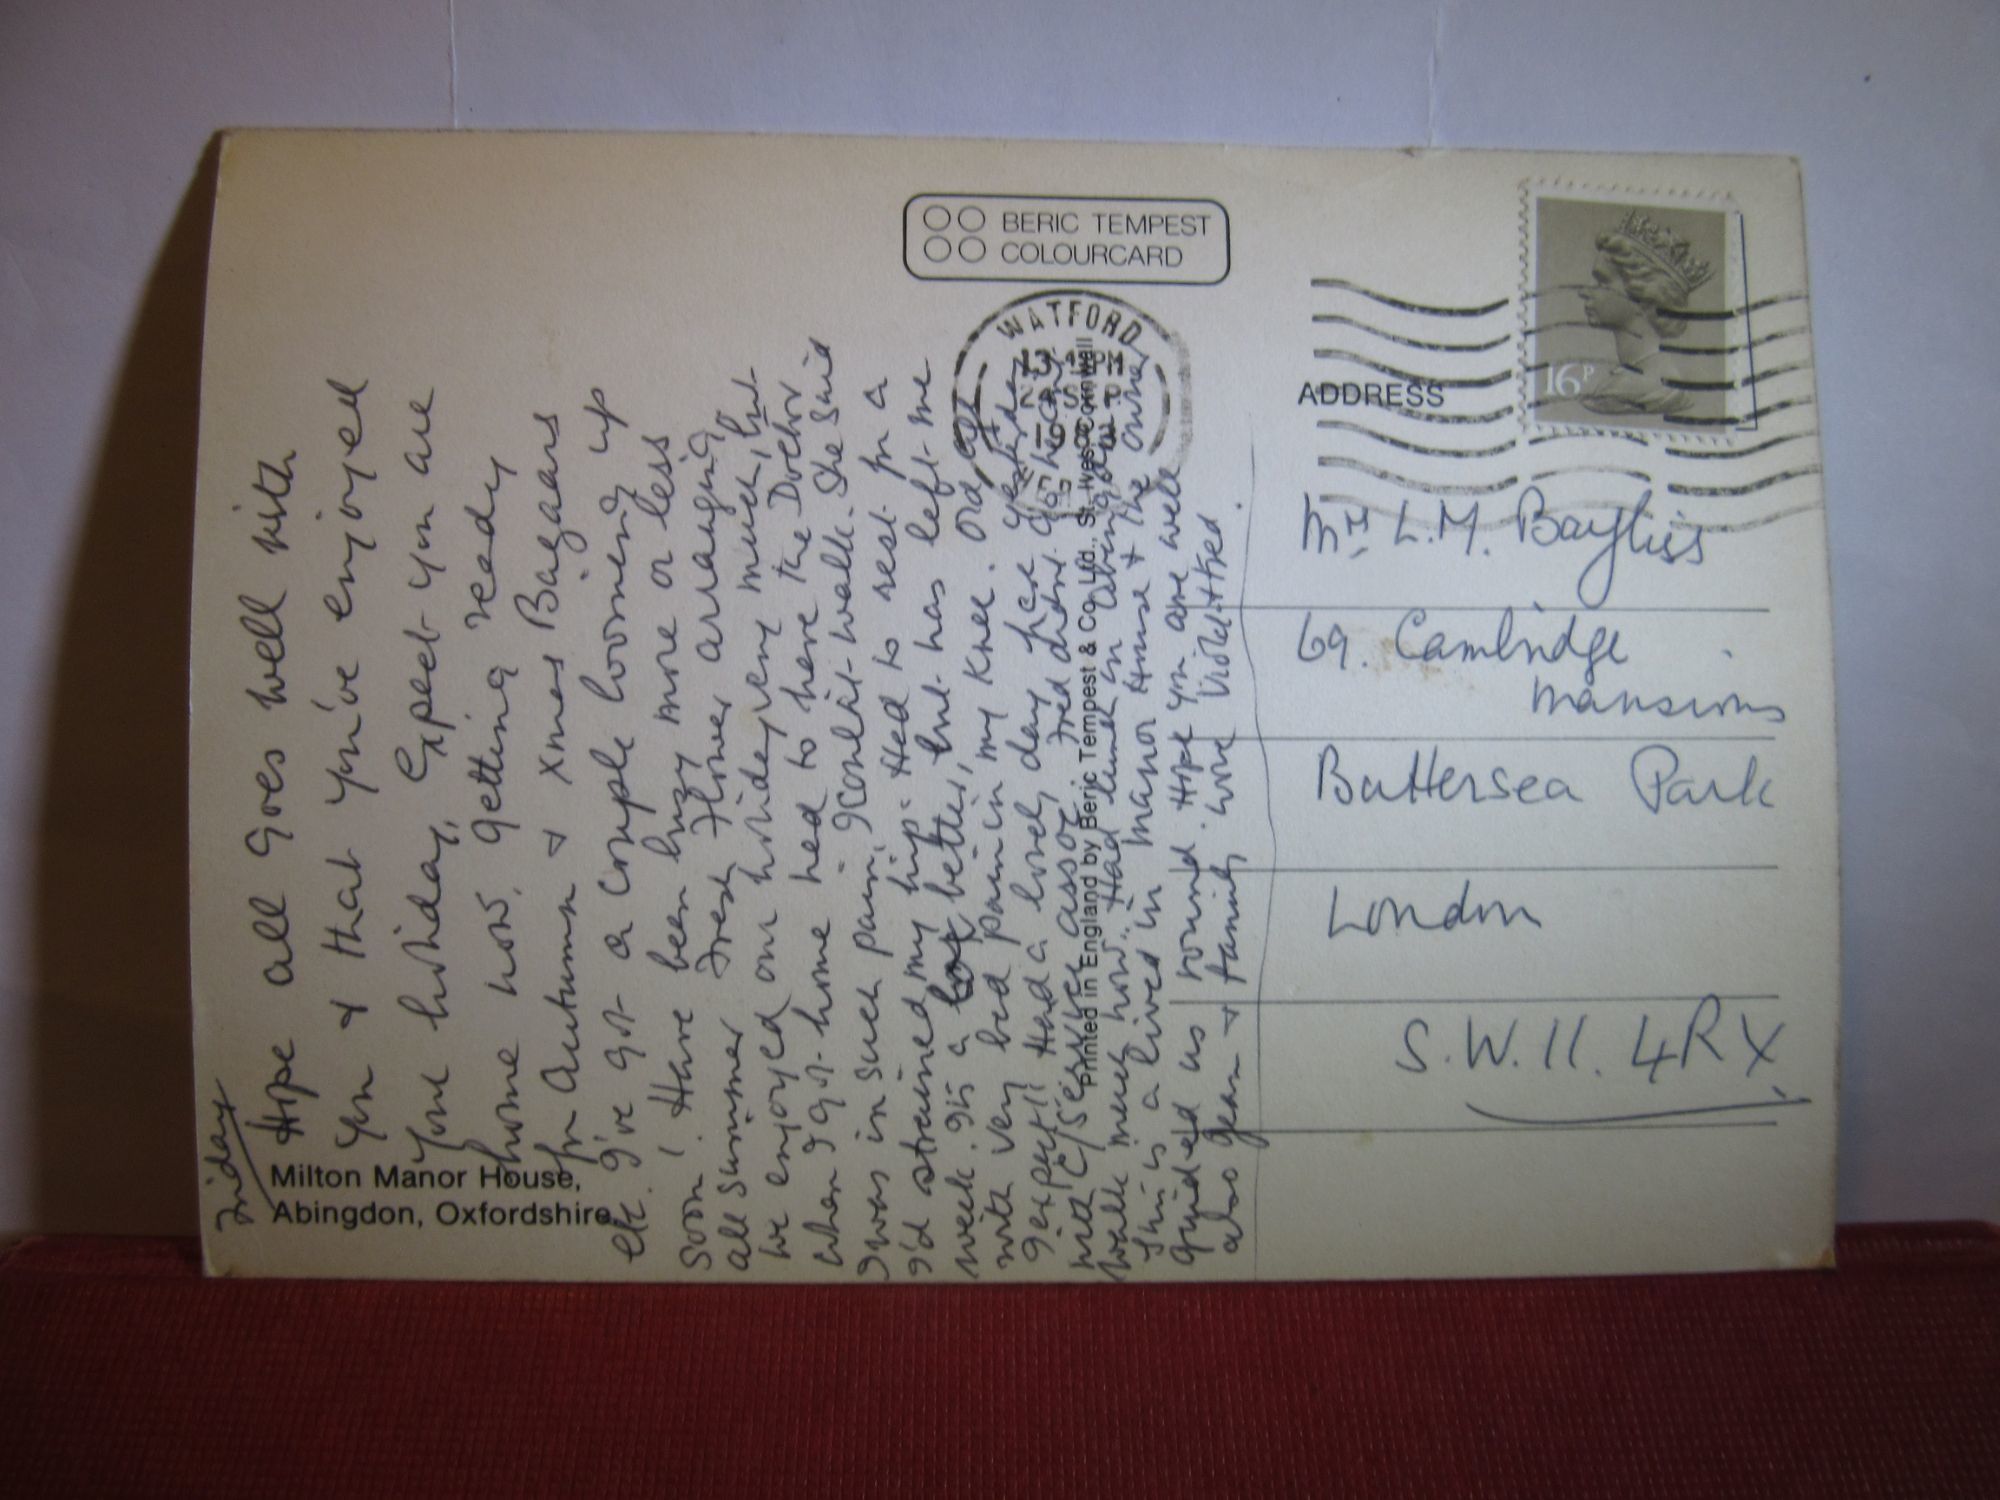 BERIC TEMPEST
COLOURCARD
WATFORD
16P
ADDRESS
Friday
Hope all goes well with
you & that you've enjoyed
your holiday, Expect you are
home now, getting ready
for Autumn & Xmas Bazaars
etc. I've got a couple looming up
soon! Have been busy more or less
all summer Fresh Flower arranging
We enjoyed our holiday very much, but
when I got home had to have the Doctor
I was in such pain, I couldn't walk. She said
I'd strained my hip. Had to rest for a
week. It's a lot better, but has left me
with very bad pain in my knee. Old age
I expect!! Had a lovely day here yesterday
with C/Service assoc, Fred didnt go he can't
walk much now. Had lunch in Abingdon
This is a lived in Manor House & the owner
guided us round. Hope you are well
also Jean & family. Love Violet & Fred.
Milton Manor House,
Abingdon, Oxfordshire.
Printed in England by Beric Tempest & Co. Ltd., St. Ives, Cornwall
L.M. Bayliss
69. Cambridge
Mansions
Battersea Park
London
S.W.11. 4RX